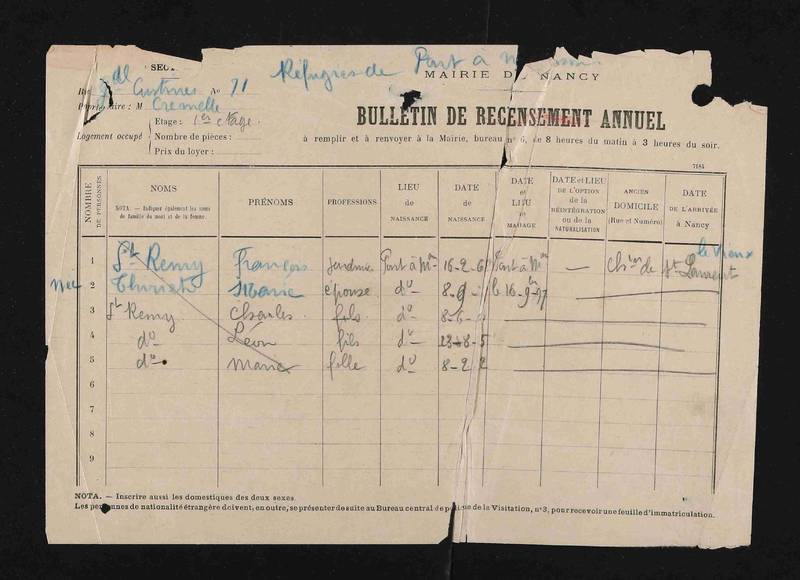 SEC
Réfugiés de Pont à M
MAIRIE DE NANCY
Rue Custines No 71
Propriétaire : M Cremelle
Logement occupé
Etage : 1er étage.
Nombre de pièces :
Prix du loyer :
BULLETIN DE RECENSEMENT ANNUEL
à remplir et à renvoyer à la Mairie, bureau n° 6, de 8 heures du matin à 3 heures du soir.
7184
NOMBRE DE PERSONNES
NOMS
NOTA. — Indiquer également les noms de famille du mari et de la femme.
PRÉNOMS
PROFESSIONS
LIEU de NAISSANCE
DATE de NAISSANCE
DATE et LIEU de MARIAGE
DATE et LIEU DE L'OPTION de la RÉINTÉGRATION ou de la NATURALISATION
ANCIEN DOMICILE (Rue et Numéro)
DATE DE L'ARRIVÉE à Nancy
le Vieux
1 St Remy François Pont à Mon 16-2-6 Pont à Mon — de St Laurent
2 née Thiriet Marie épouse do 8-9- le 16-9-97
3 St Remy Charles fils do 8-6-
4 do Léon fils do 23-8-5
5 do Marie fille do 8-2-2
6
7
8
9
NOTA. — Inscrire aussi les domestiques des deux sexes.
Les personnes de nationalité étrangère doivent, en outre, se présenter de suite au Bureau central de police de la Visitation, n° 3, pour recevoir une feuille d'immatriculation.